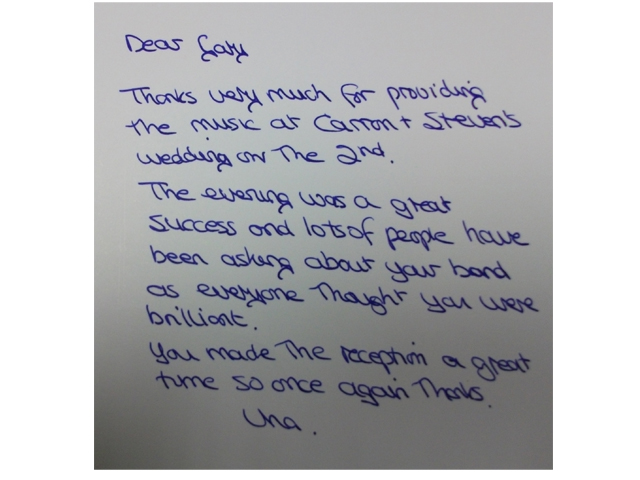 Dear Gary
Thanks very much for providing
the music at Carron + Steven's
wedding on The 2nd.
The evening was a great
success and lots of people have
been asking about your band
as everyone Thought you were
brilliant.
You made The reception a great
time so once again Thanks.
Una.